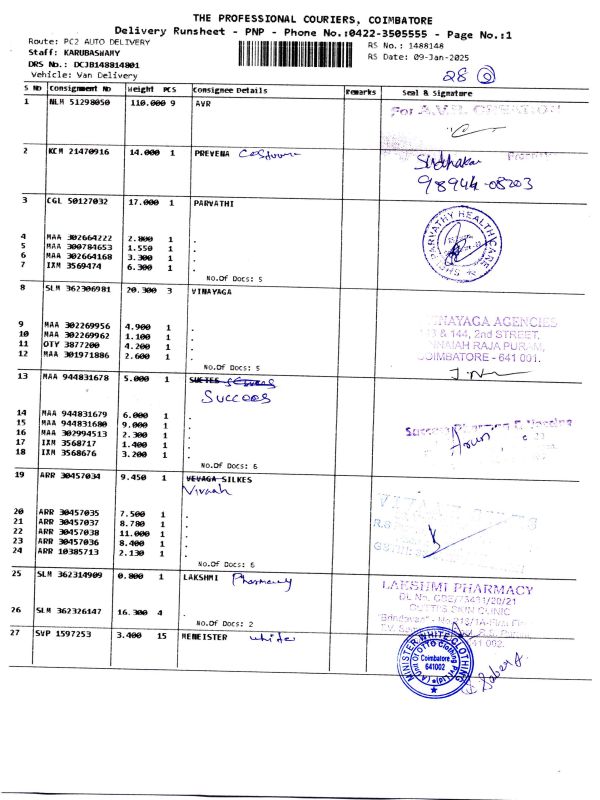 THE PROFESSIONAL COURIERS, COIMBATORE
Delivery Runsheet - PNP - Phone No.:0422-3505555 - Page No.:1
Route: PC2 AUTO DELIVERY
RS No.: 1488148
Staff: KARUBASWAMY
RS Date: 09-Jan-2025
DRS No.: DCJB148814801
Vehicle: Van Delivery
28
S No Consignment No Weight PCS Consignee Details Remarks Seal & Signature
1 NLM 51298050 110.000 9 AVR
For
2 KCM 21470916 14.000 1 PREVENA
Sudhakar
98944-08203
3 CGL 50127032 17.000 1 PARVATHI
PARVATHY HEALTHCARE
4 MAA 302664222 2.800 1 .
5 MAA 300784653 1.550 1 .
6 MAA 302664168 3.300 1 .
7 IXM 3569474 6.300 1 .
No.Of Docs: 5
8 SLM 362306981 20.300 3 VINAYAGA
9 MAA 302269956 4.900 1 .
10 MAA 302269962 1.100 1 .
11 OTY 3877200 4.200 1 .
12 MAA 301971886 2.600 1 .
No.Of Docs: 5
VINAYAGA AGENCIES
& 144, 2nd STREET,
RAJA PURAM,
COIMBATORE - 641 001.
13 MAA 944831678 5.000 1
Success
14 MAA 944831679 6.000 1 .
15 MAA 944831680 9.000 1 .
16 MAA 302994513 2.300 1 .
17 IXM 3568717 1.400 1 .
18 IXM 3568676 3.200 1 .
No.Of Docs: 6
Arun
19 ARR 30457034 9.450 1 VEVAGA SILKES
Vivaah
20 ARR 30457035 7.500 1 .
21 ARR 30457037 8.780 1 .
22 ARR 30457038 11.000 1 .
23 ARR 30457036 8.400 1 .
24 ARR 10385713 2.130 1 .
No.Of Docs: 6
25 SLM 362314909 0.800 1 LAKSHMI Pharmacy
LAKSHMI PHARMACY
SKIN CLINIC
26 SLM 362326147 16.300 4 .
No.Of Docs: 2
27 SVP 1597253 3.400 15 MEMEISTER white
MINISTER WHITE CLOTHING
Coimbatore
641002